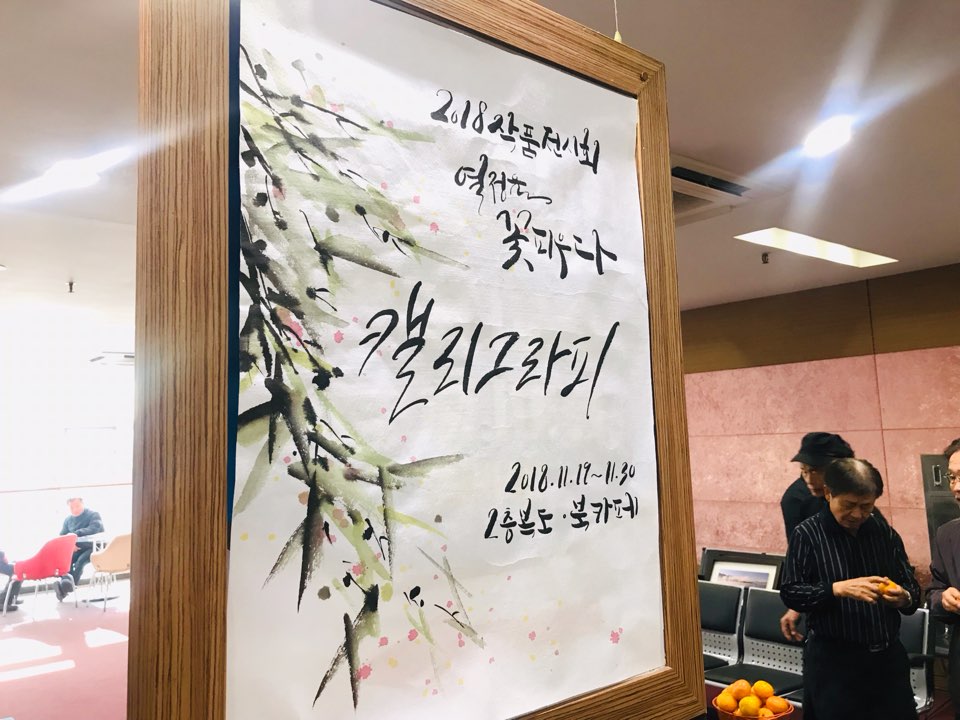 2018 작품전시회
열정으로
꽃피우다
캘리그라피
2018.11.19~11.30
2층복도·북카페